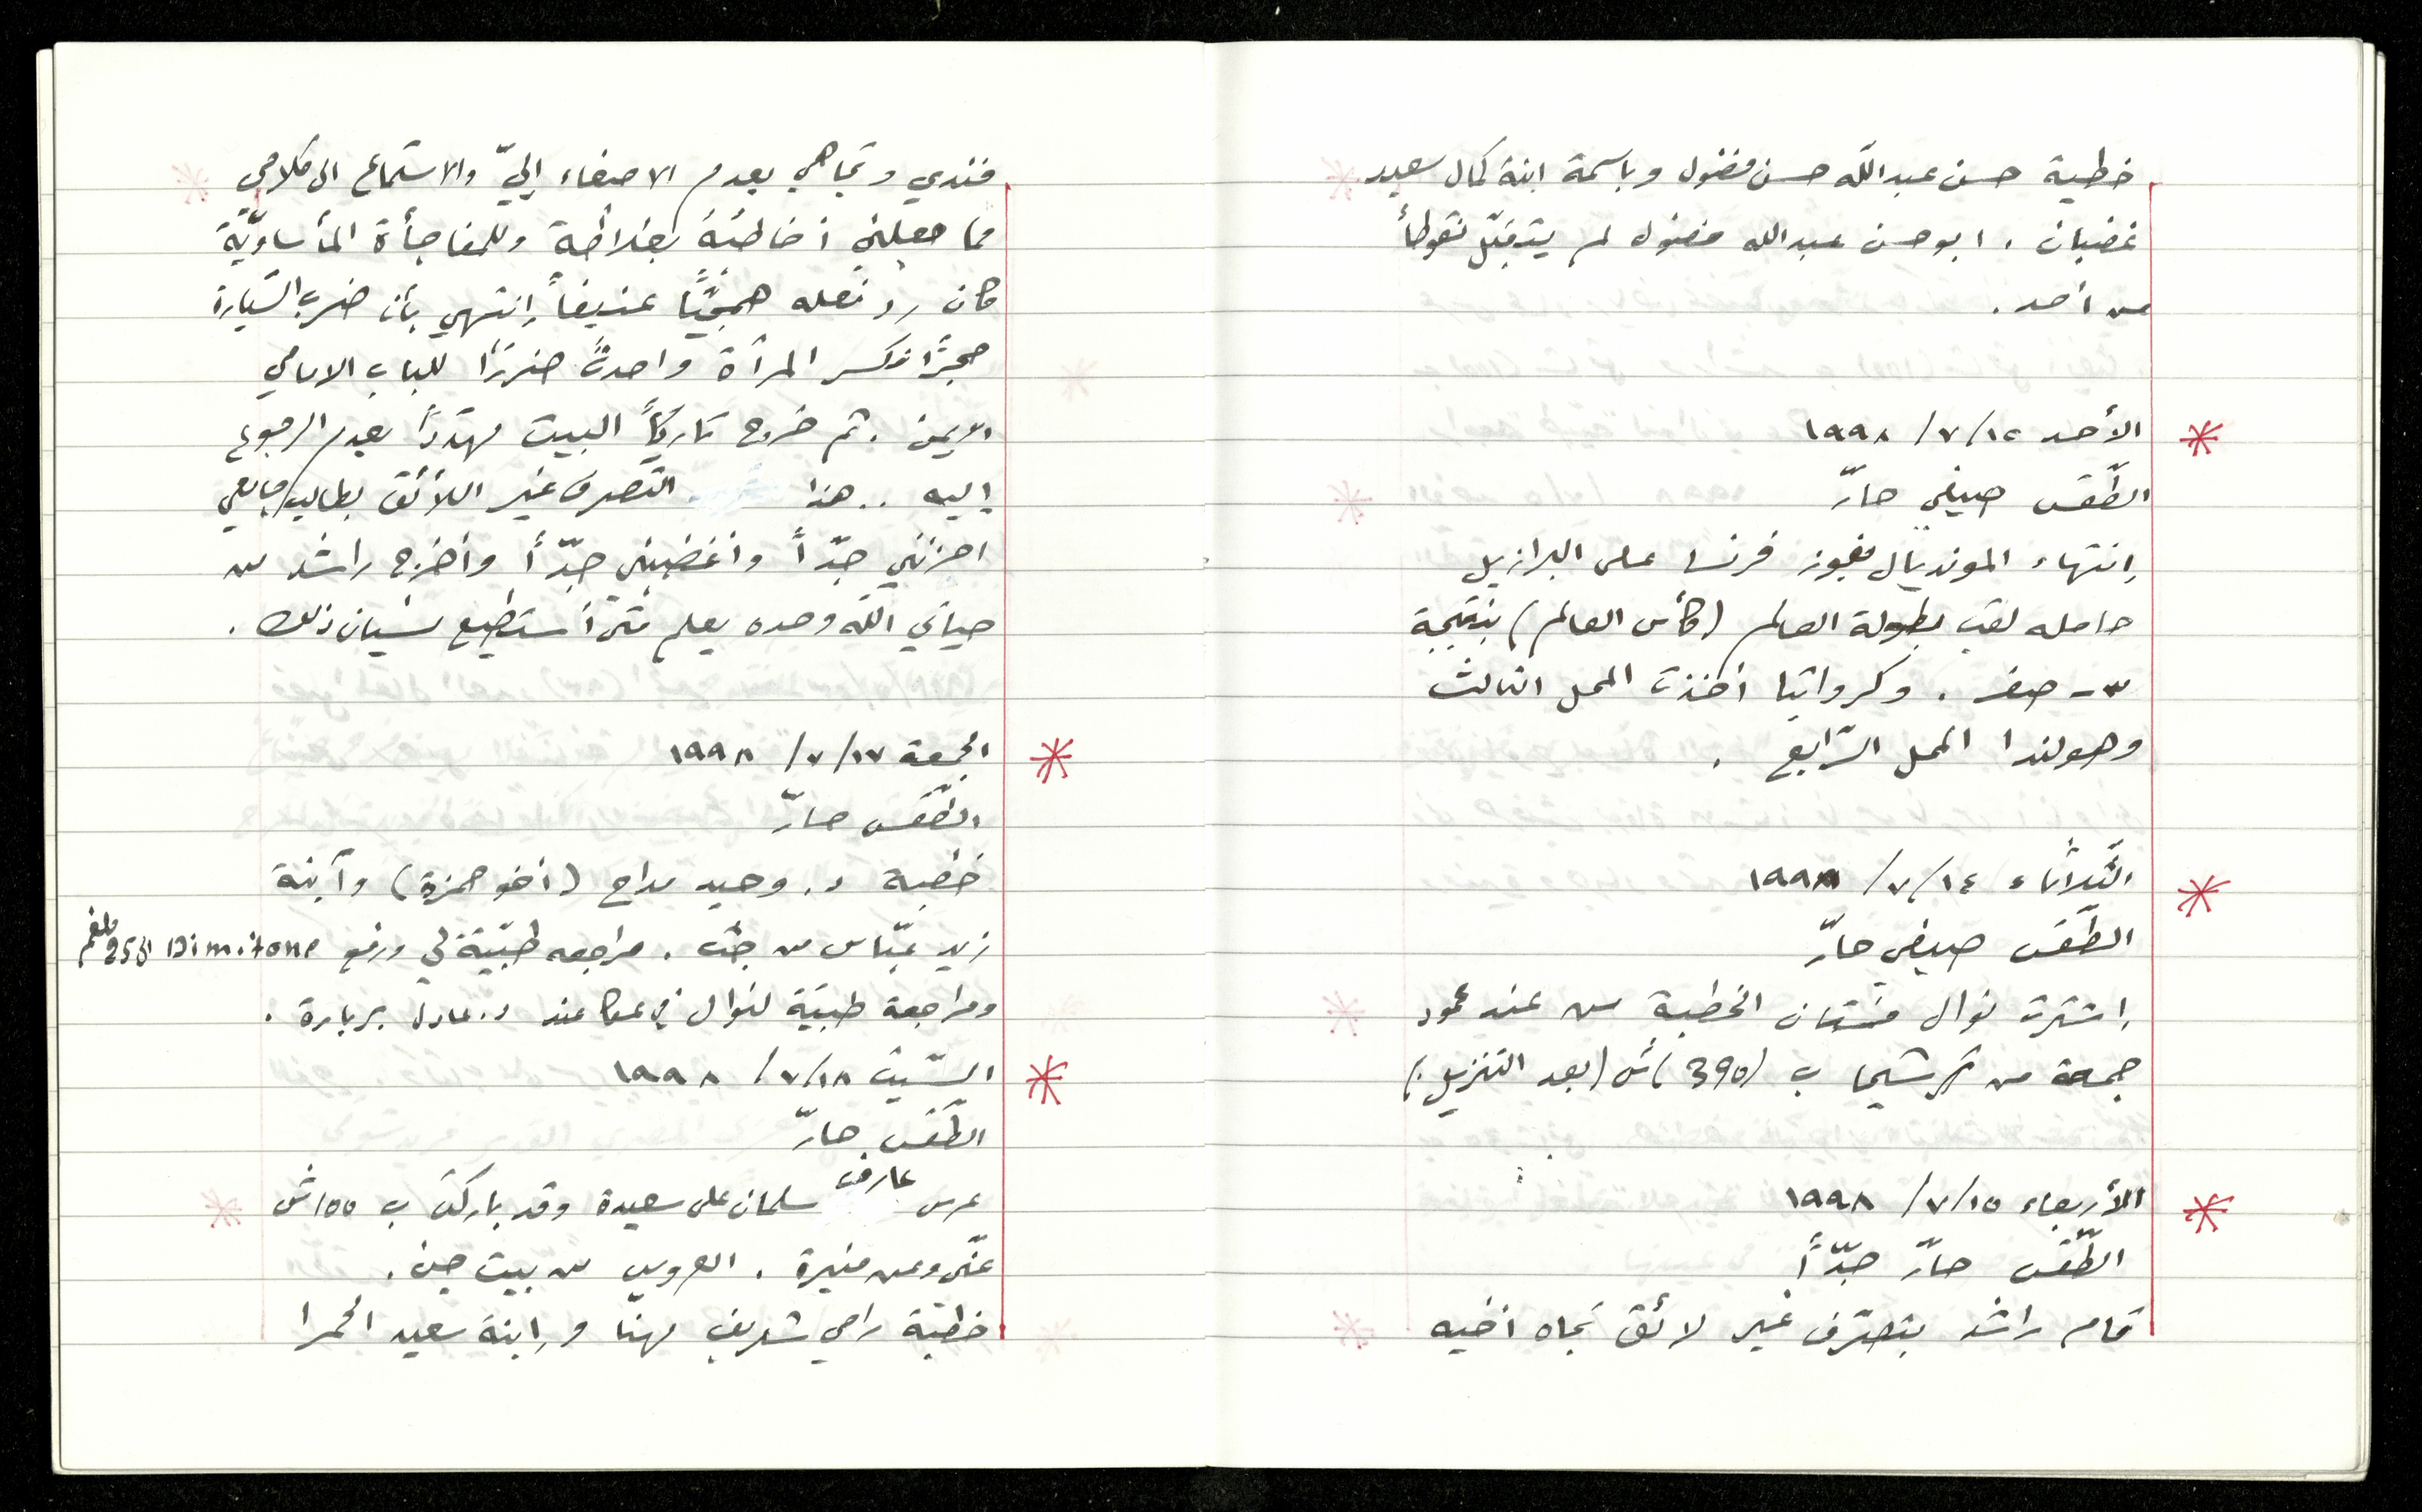 خطبة حسن عبدالله حسن فضول وباسمة ابنة كمال سعيد
غضبان . ابو حسن عبدالله فضول لم يتقبّل نقوطاً
من أحد .
* الأحد ١٢/٧/١٩٩٨
الطّقس صيفي حارّ
إنتهاء المونديال بفوز فرنسا على البرازيل
حامله لقب بطولة العالم (كأس العالم) بنتيجة
٣ - صفر . وكرواتيا أخذت المحل الثالث
وهولندا المحل الرّابع .
* الثّلاثاء ١٤/٧/١٩٩٨
الطّقس صيفي حارّ
إشترت نوال فستان الخطبة من عند محمود
جمعة من ترشيحا ب (390) ش (بعد التنزيل)
* الأربعاء ١٥/٧/١٩٩٨
الطّقس حارّ جدّاً
قام راشد بتصرّف غير لائق تجاه أخيه
فندي وتجاهي بعدم الاصغاء إليّ والاستماع الى كلامي
مما جعلني أخاطبه بغلاظة وللمفاجأة المأساويّة
كان رد فعله همجيّاً عنيفاً إنتهى بأن ضرب السّيارة
حجرًا فكسر المرآة واحدث ضررًا للباب الامامي
الايمن . ثم خرج تاركاً البيت مهدّدًا بعدم الرجوع
إليه .. هذا التصرف غير اللائق بطالب جامعي
احزنني جدّاً وأغضبني جدّاً وأخرج راشد من
حياتي الله وحده يعلم متى أستطيع نسيان ذلك .
* الجمعة ١٧/٧/١٩٩٨
الطّقس حارّ
خطبة د. وحيد مداح (أخو حمزة) وآبنة
زيد عبّاس من جث . مراجعه طبيّة لي ورفع Dimitone الى 25 ملغم
ومراجعة طبيّة لنوال في عكا عند د. عادل بربارة .
* السّبت ١٨/٧/١٩٩٨
الطّقس حارّ
عرس عارف سلمان على سعيدة وقد باركتُ ب ١٥٥ ش
عنّي وعن منيرة . العروس من بيت جن .
خطبة رامي شريف مهنّا وإبنة سعيد الحمرا